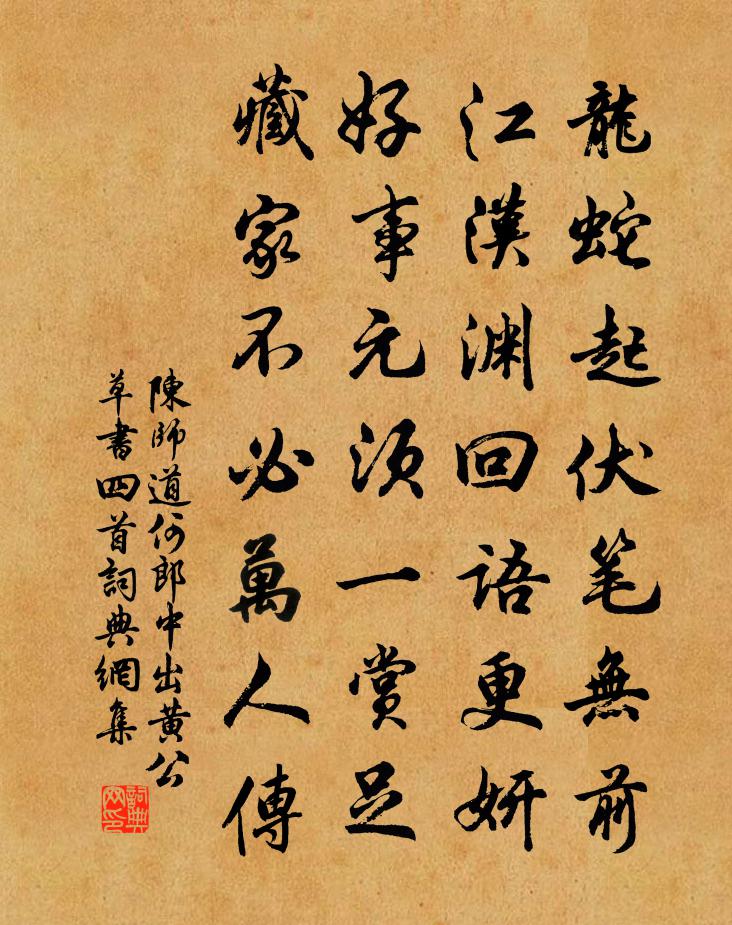 龍蛇起伏笔無前
江漢渊回語更妍
好事元须一赏足
藏家不必萬人傳
陳師道何郎中出黄公
草書四首詞典網集
詞典
网印